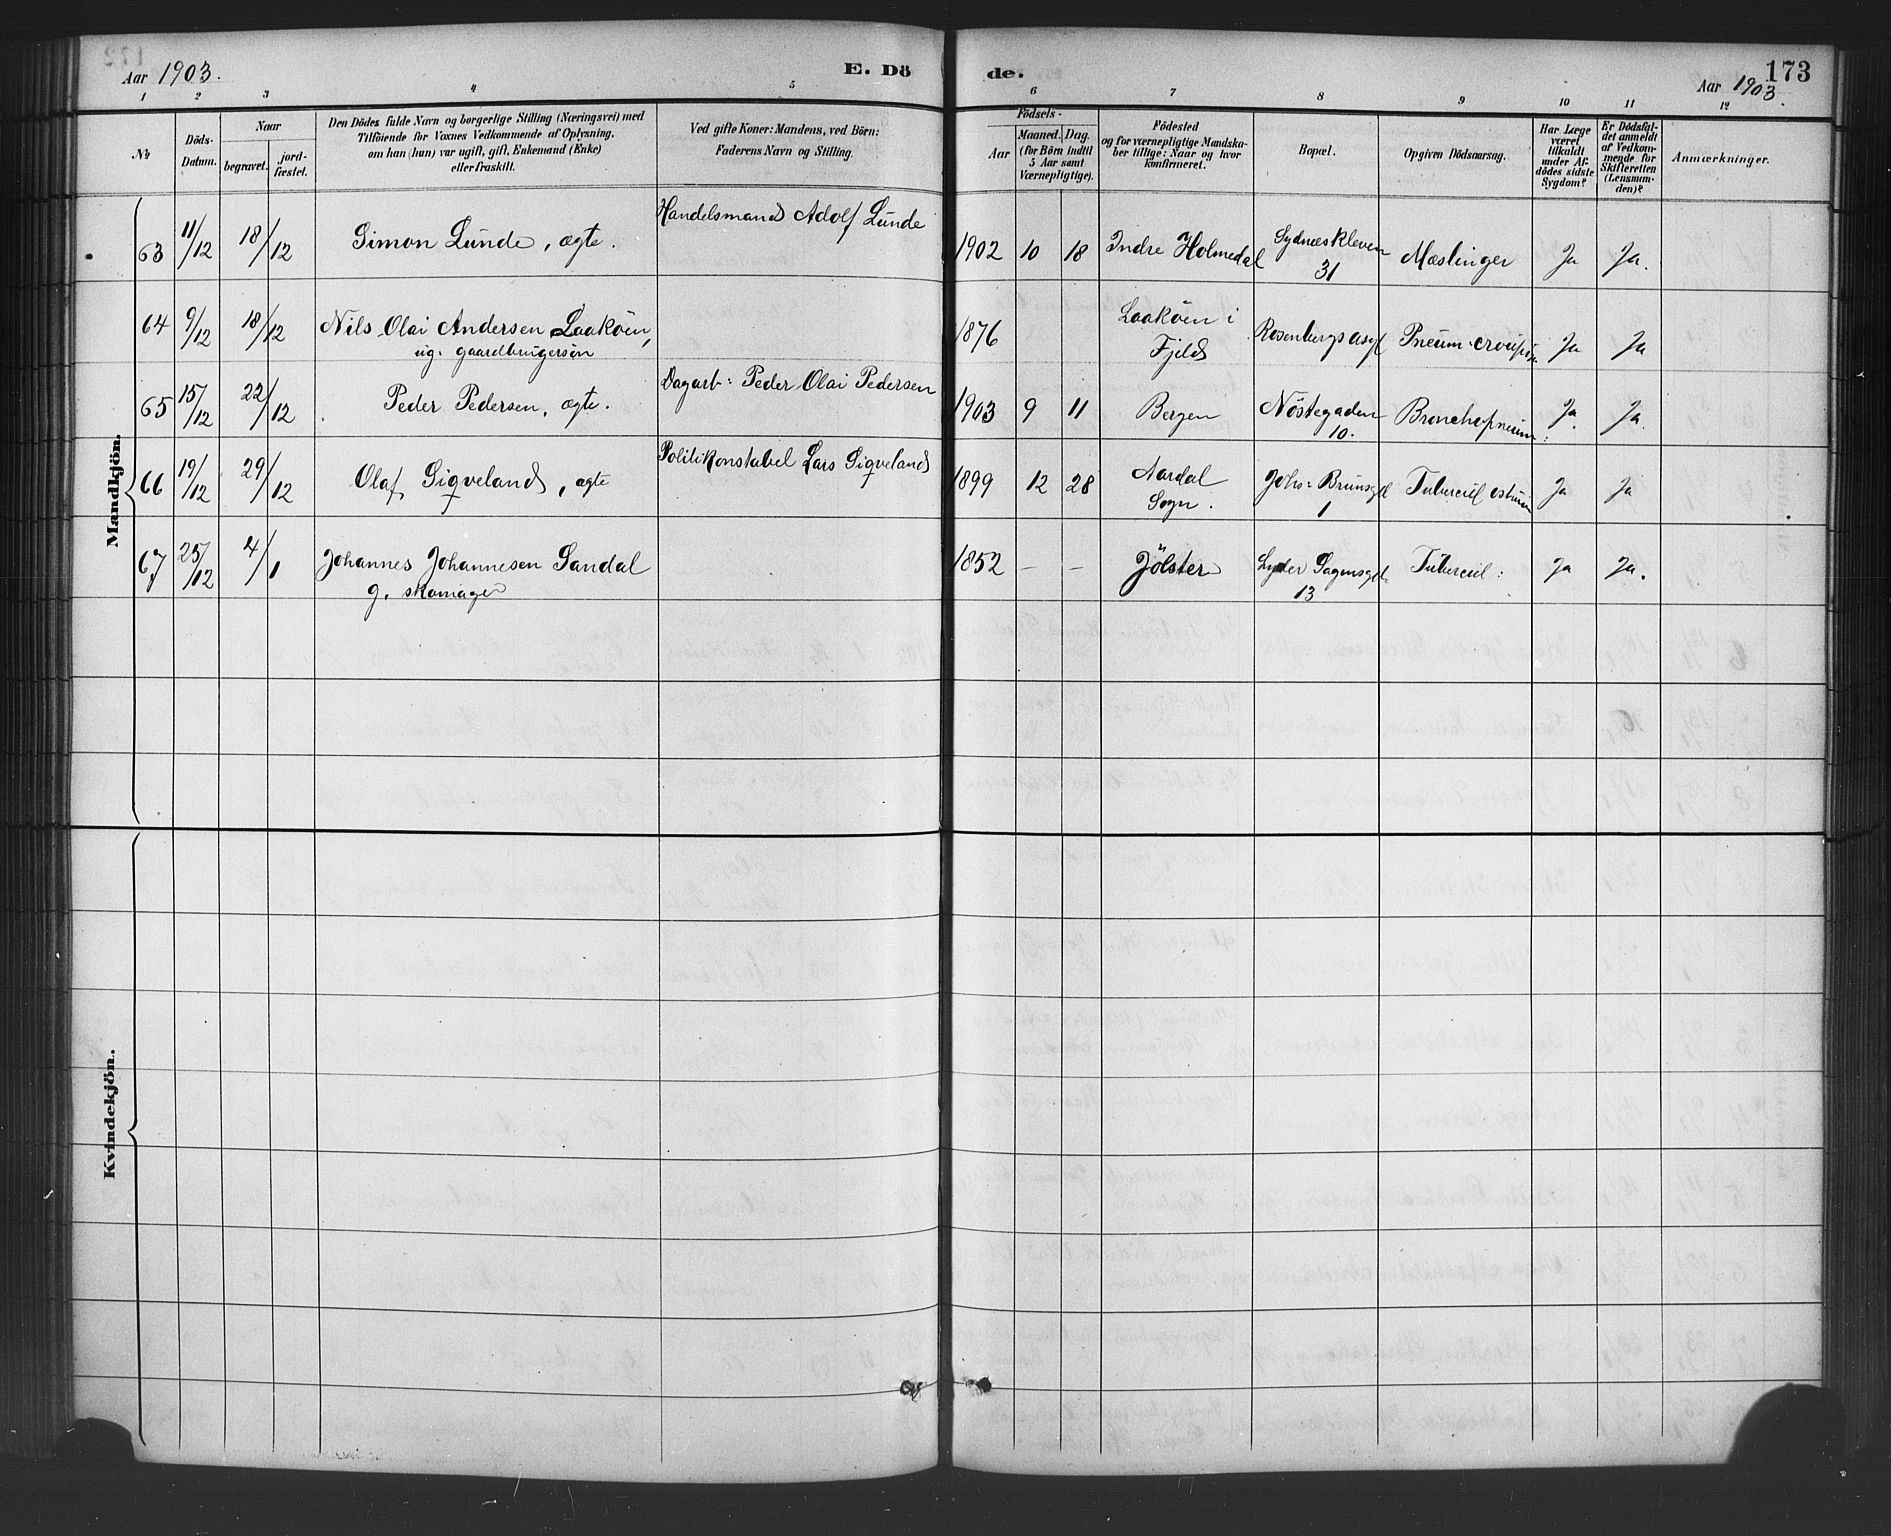 Aar 1903.
E. Dö
de.
173
Aar 1903.
1 2 3 4 5 6 7 8 9 10 11 12
No
Döds-
Datum.
Naar
begravet.
jord-
fæstet.
Den Dödes fulde Navn og borgerlige Stilling (Næringsvei) med
Tilföiende for Voxnes Vedkommende af Oplysning,
om han (hun) var ugift, gift, Enkemand (Enke)
eller fraskilt.
Ved gifte Koner: Mandens, ved Börn:
Faderens Navn og Stilling.
Födsels-
Aar
Maaned. Dag.
(for Börn indtil
5 Aar samt
Værnepligtige).
Födested
og for værnepligtige Mandska-
ber tillige: Naar og hvor
konfirmeret.
Bopæl.
Opgiven Dödsaarsag.
Har Læge
været
tilkaldt
under Af-
dödes sidste
Sygdom?
Er Dödsfal-
det anmeldt
af Vedkom-
mende for
Skifteretten
(Lensman-
den)?
Anmærkninger.
Mandkjön.
63 11/12 18/12 Simon Lunde, ægte. Handelsmand Adolf Lunde 1902 10 18 Indre Holmedal Sydnæskleven 31 Mæslinger Ja Ja.
64 9/12 18/12 Nils Olai Andersen Laaköen,
ug. gaardbrugersøn 1876 Laaköen i
Fjeld Rosenbergs asyl Pneum. croupøs Ja Ja
65 15/12 22/12 Peder Pedersen, ægte. Dagarb: Peder Olai Pedersen 1903 9 11 Bergen Nöstegaden
10. Bronchopneum: Ja. Ja.
66 19/12 29/12 Olaf Sigveland, ægte Politikonstabel Lars Sigveland 1899 12 28 Aardal
Sogn. Johs: Brunsgd
1 Tubercul Ja Ja
67 25/12 4/1 Johannes Johannesen Sandal
g. skomager 1852 – – Jölster Lyder Sagensgd.
13 Tubercul: Ja Ja.
Kvindekjön.